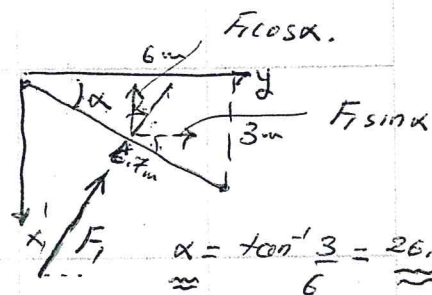 F₁cosα.
6 m
y
α
F₁ sinα
3 m
6.7m
x₁'
F₁
α = tan⁻¹ 3/6 = 26.